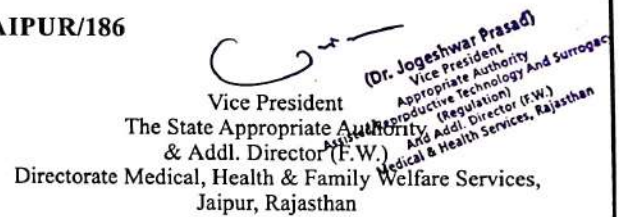 AIPUR/186
(Dr. Jogeshwar Prasad)
Vice President
Appropriate Authority
Assisted Reproductive Technology And Surrogacy
(Regulation)
And Addl. Director (F.W.)
Medical & Health Services, Rajasthan
Vice President
The State Appropriate Authority
& Addl. Director (F.W.)
Directorate Medical, Health & Family Welfare Services,
Jaipur, Rajasthan